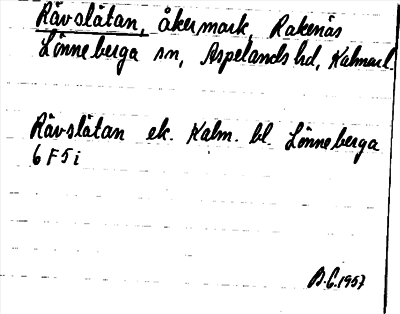 Rävslåtan, åkermark, Rakenäs
Lönneberga sn, Aspelands hd, Kalmar l.
Rävslåtan ek. Kalm. bl. Lönneberga
6 F 5 i
B.G. 1957